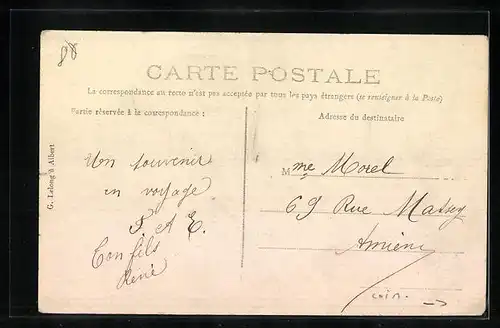 88
CARTE POSTALE
La correspondance au recto n'est pas acceptée par tous les pays étrangers (se renseigner à la Poste)
Partie réservée à la correspondance :
Adresse du destinataire
G. Lelong à Albert
Un souvenir
en voyage
P. A E.
Ton fils
René
Mme Morel
69 Rue Massey
Amiens